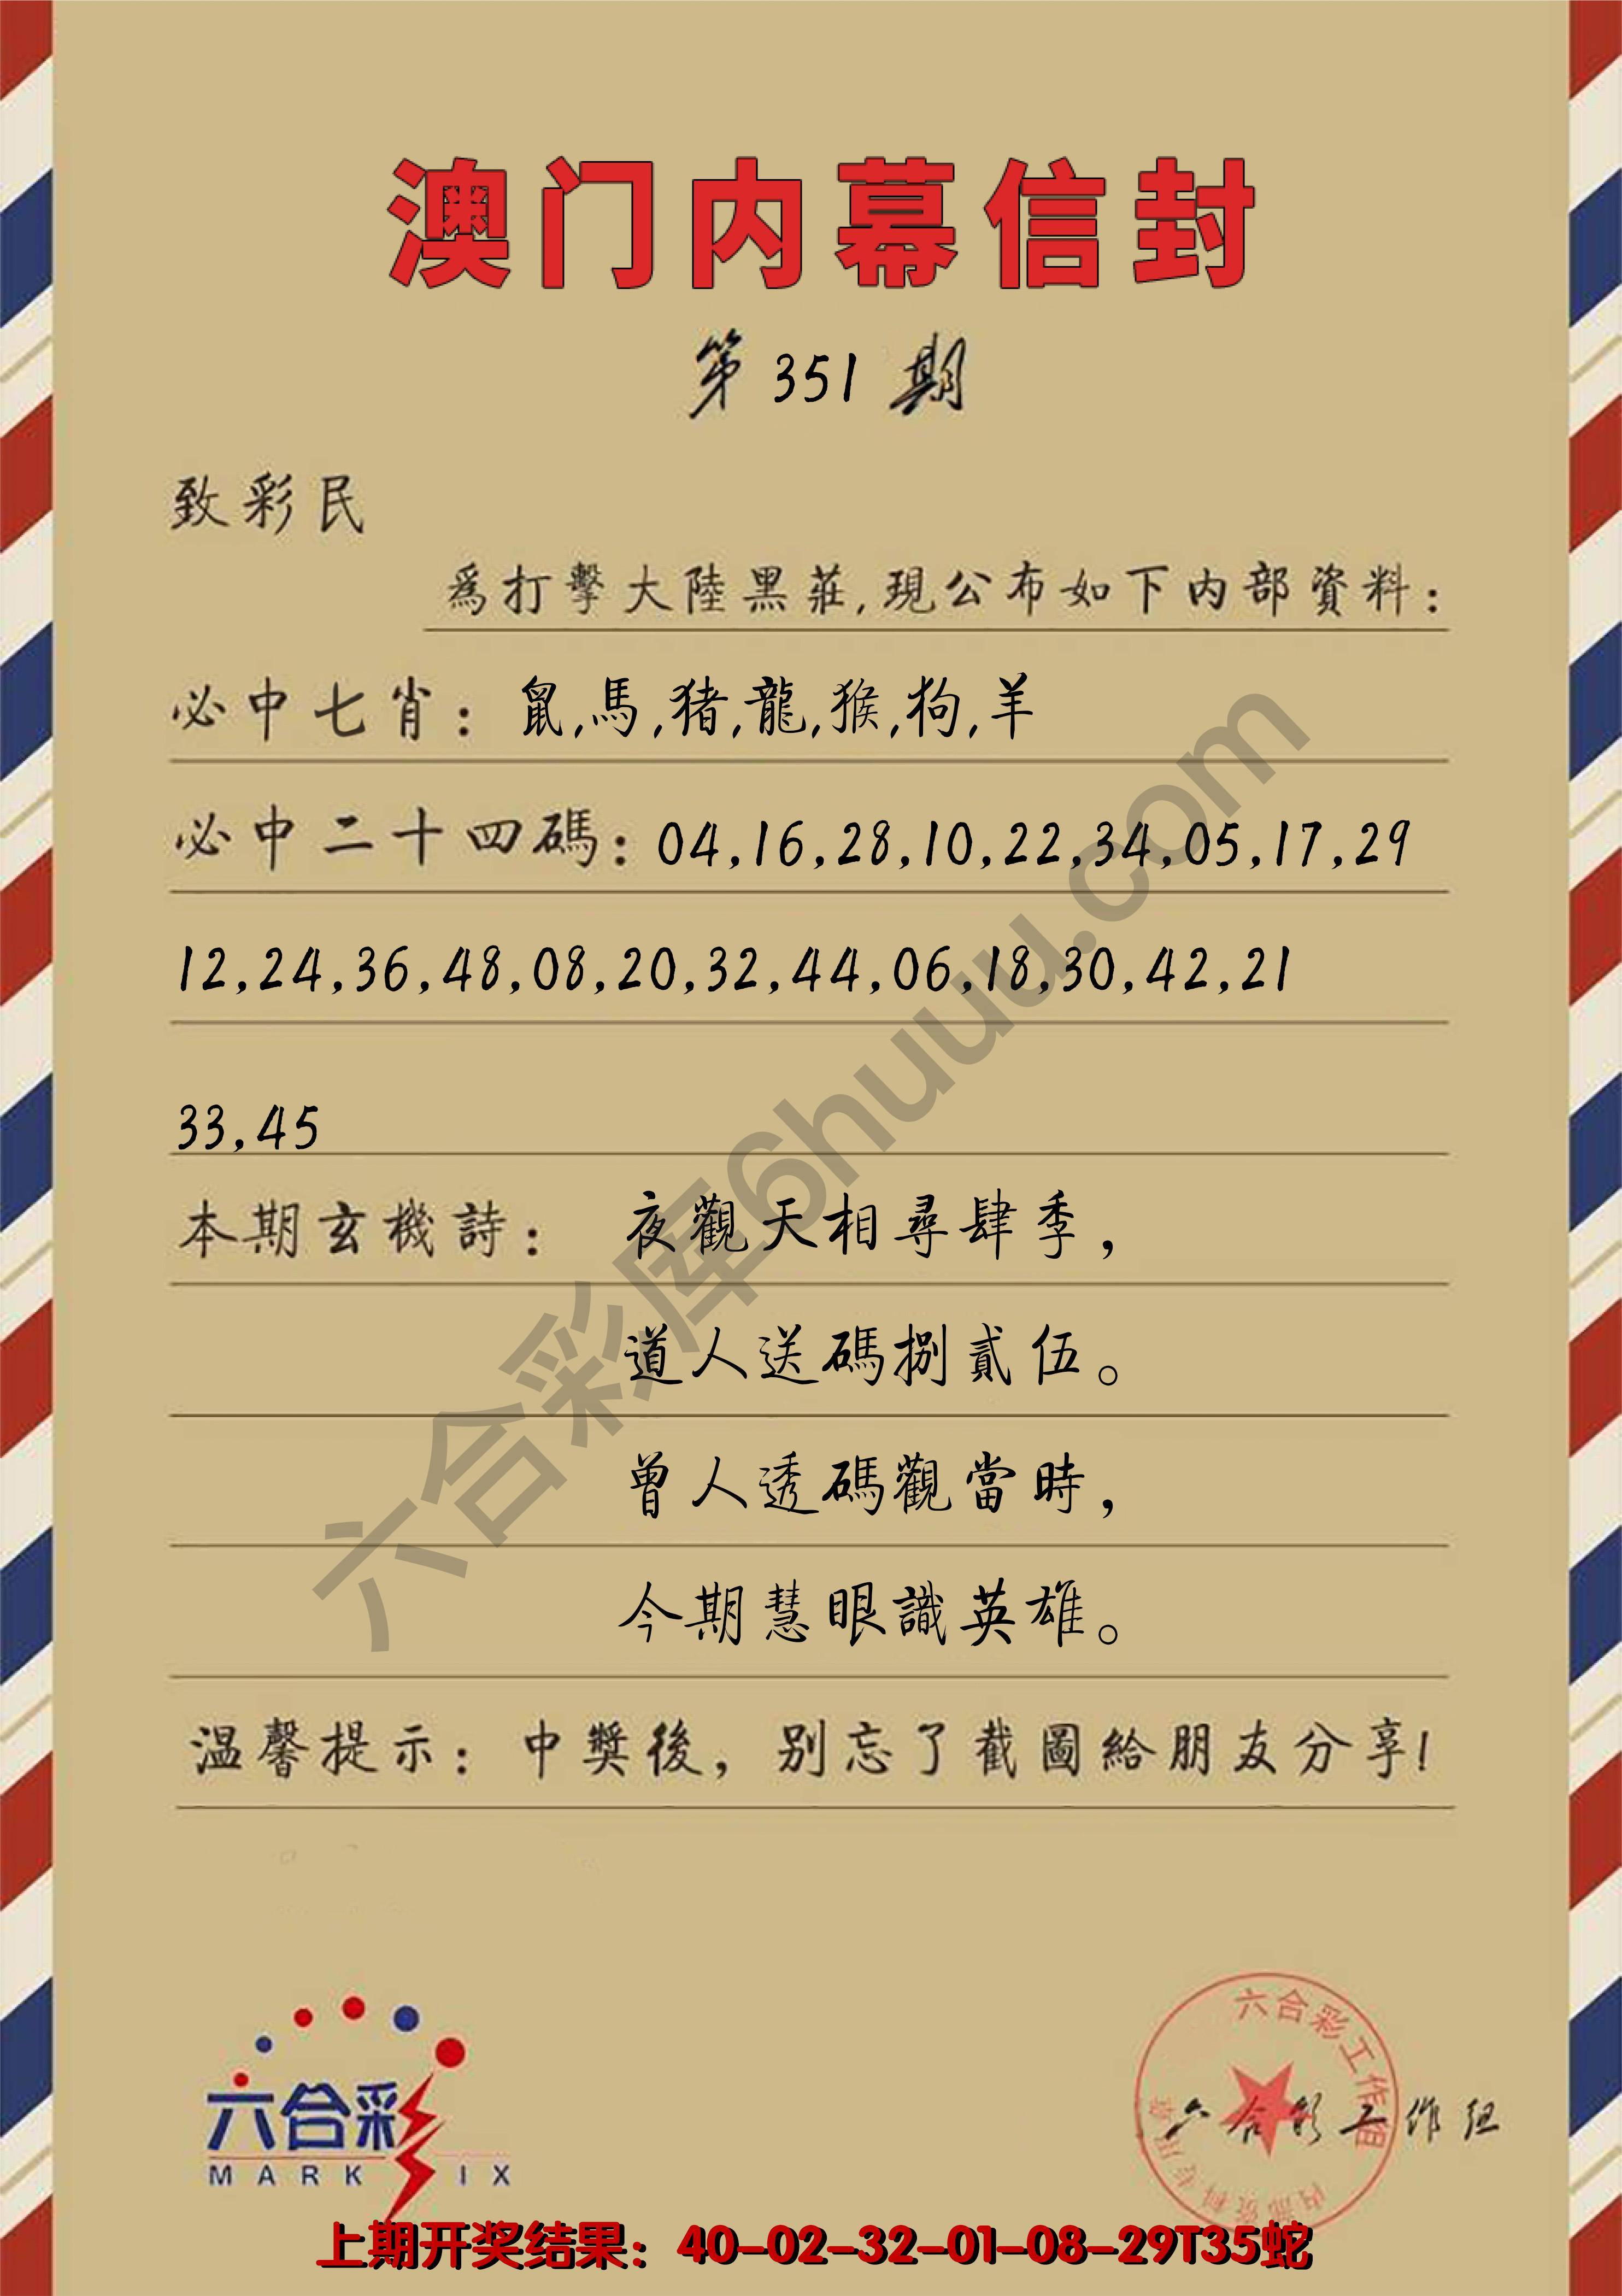 澳门内幕信封
第 351 期
致彩民
爲打擊大陸黑莊,現公布如下内部資料:
必中七肖: 鼠,馬,猪,龍,猴,狗,羊
必中二十四碼: 04,16,28,10,22,34,05,17,29
12,24,36,48,08,20,32,44,06,18,30,42,21
33,45
本期玄機詩: 夜觀天相尋肆季,
道人送碼捌貳伍。
曾人透碼觀當時,
今期慧眼識英雄。
温馨提示: 中獎後, 别忘了截圖給朋友分享!
六合彩库6huuu.com
六合彩
MARK IX
六合彩工作组
内部资料专用章
六合彩工作组
上期开奖结果: 40-02-32-01-08-29T35蛇